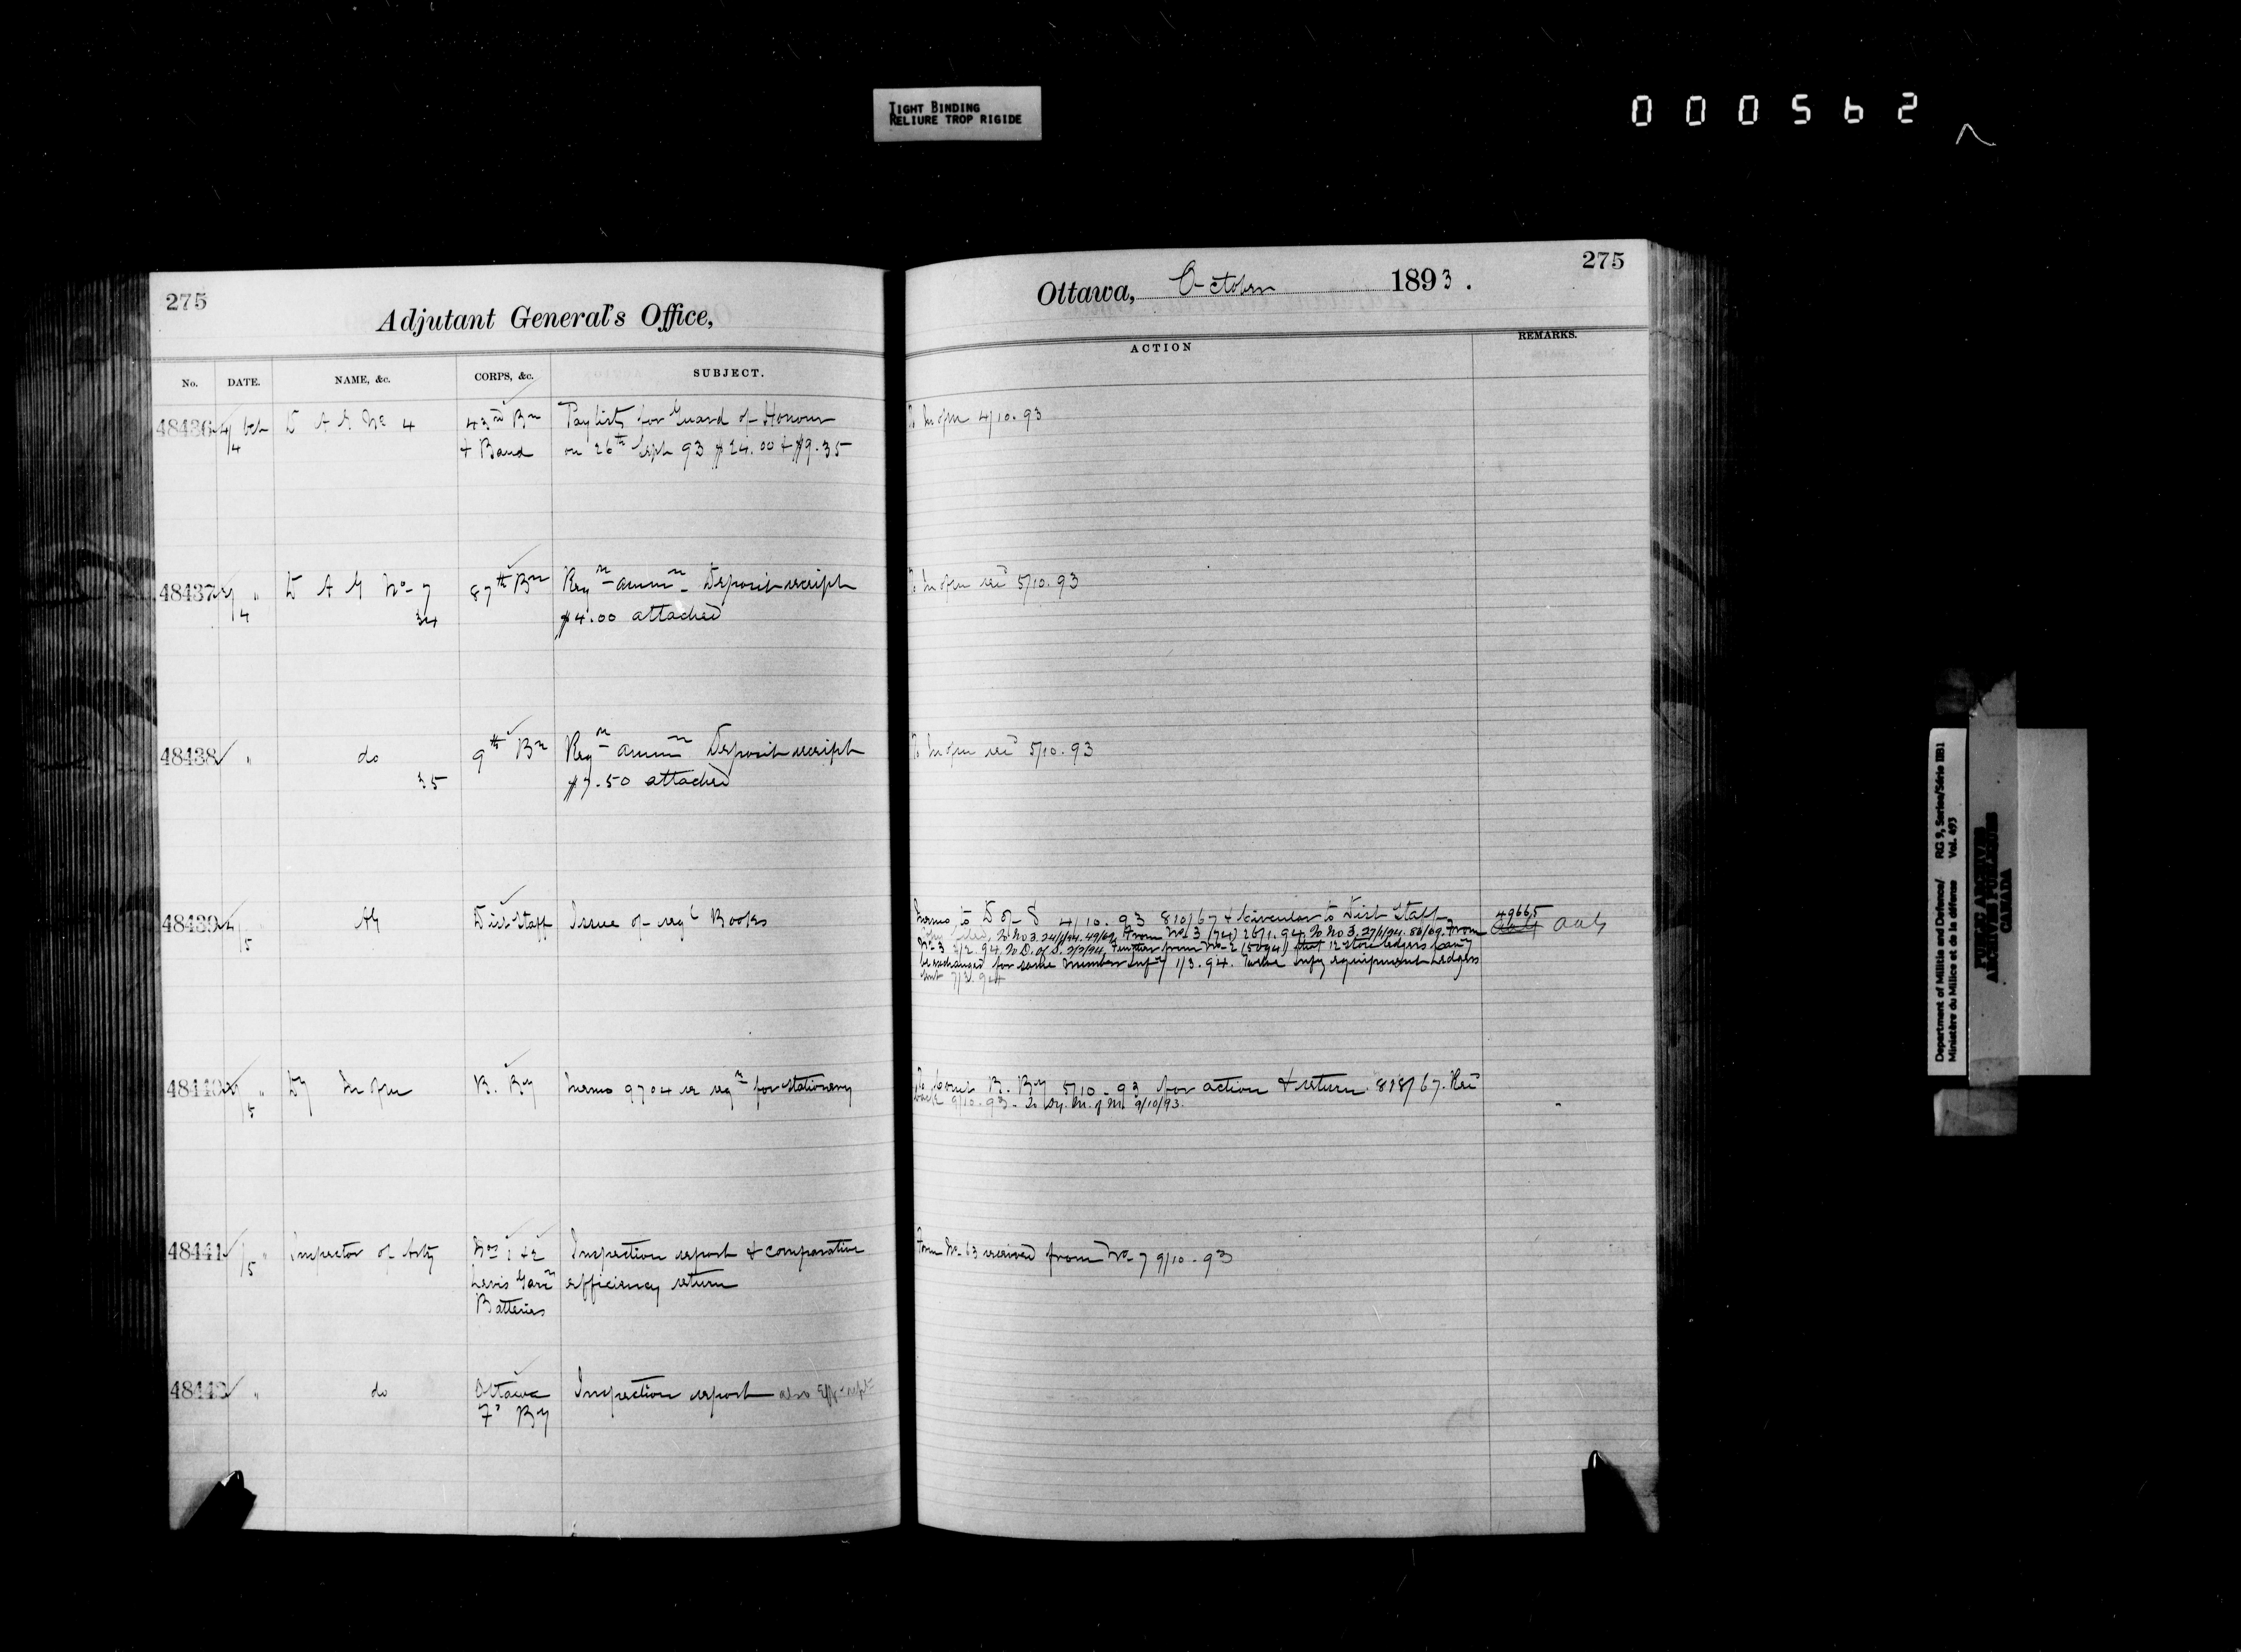 TIGHT BINDING
RELIURE TROP RIGIDE
000562
275
Adjutant General's Office,
No. DATE. NAME, &c. CORPS, &c. SUBJECT.
48436 4/4 Oct D A G No 4 43rd Bn Pay lists for Guard of Honour
& Band on 26th Sept 93 $24.00 & $9.35
48437 3/4 " D A G No 7 87th Bn Reqn ammn Deposit receipt
34 $4.00 attached
48438 " do 9th Bn Reqn ammn Deposit receipt
35 $7.50 attached
48439 4/5 " AG Dist Staff Issue of regl Books
48440 /5 " Dy M of M B. By Memo 9704 re reqn for stationery
48441 /5 " Inspector of Arty Nos 1 & 2 Inspection report & comparative
Levis Garn efficiency return
Batteries
48442 " do Ottawa Inspection report also
Fd By
Ottawa, October 1893.
275
ACTION REMARKS.
To M of M 4/10.93
To M of M recd 5/10.93
To M of M recd 5/10.93
Memo to D of S 4/10.93 810/67 & Circular to Dist Staff 49665
To No 3. 24/1/94. 49/69. From No 3 (74) 26/1.94. To No 3. 27/1/94. 86/69. From AAG
No 3 2/2.94. To D. of S. 2/2/94. Further from No 2 (5094) that 12 store ledgers
be exchanged for same number Infy 1/3.94. Twelve Infy equipment Ledgers
sent 7/3.94
To Comt B. By 5/10.93 for action & return 818/67. Recd
back 9/10.93. To Dy. M. of M. 9/10/93.
Form No 63 received from No 7 9/10.93
Department of Militia and Defence/ RG 9, Series/Série IIB1
Ministère du Milice et de la défense Vol. 493
PUBLIC ARCHIVES
ARCHIVES PUBLIQUES
CANADA